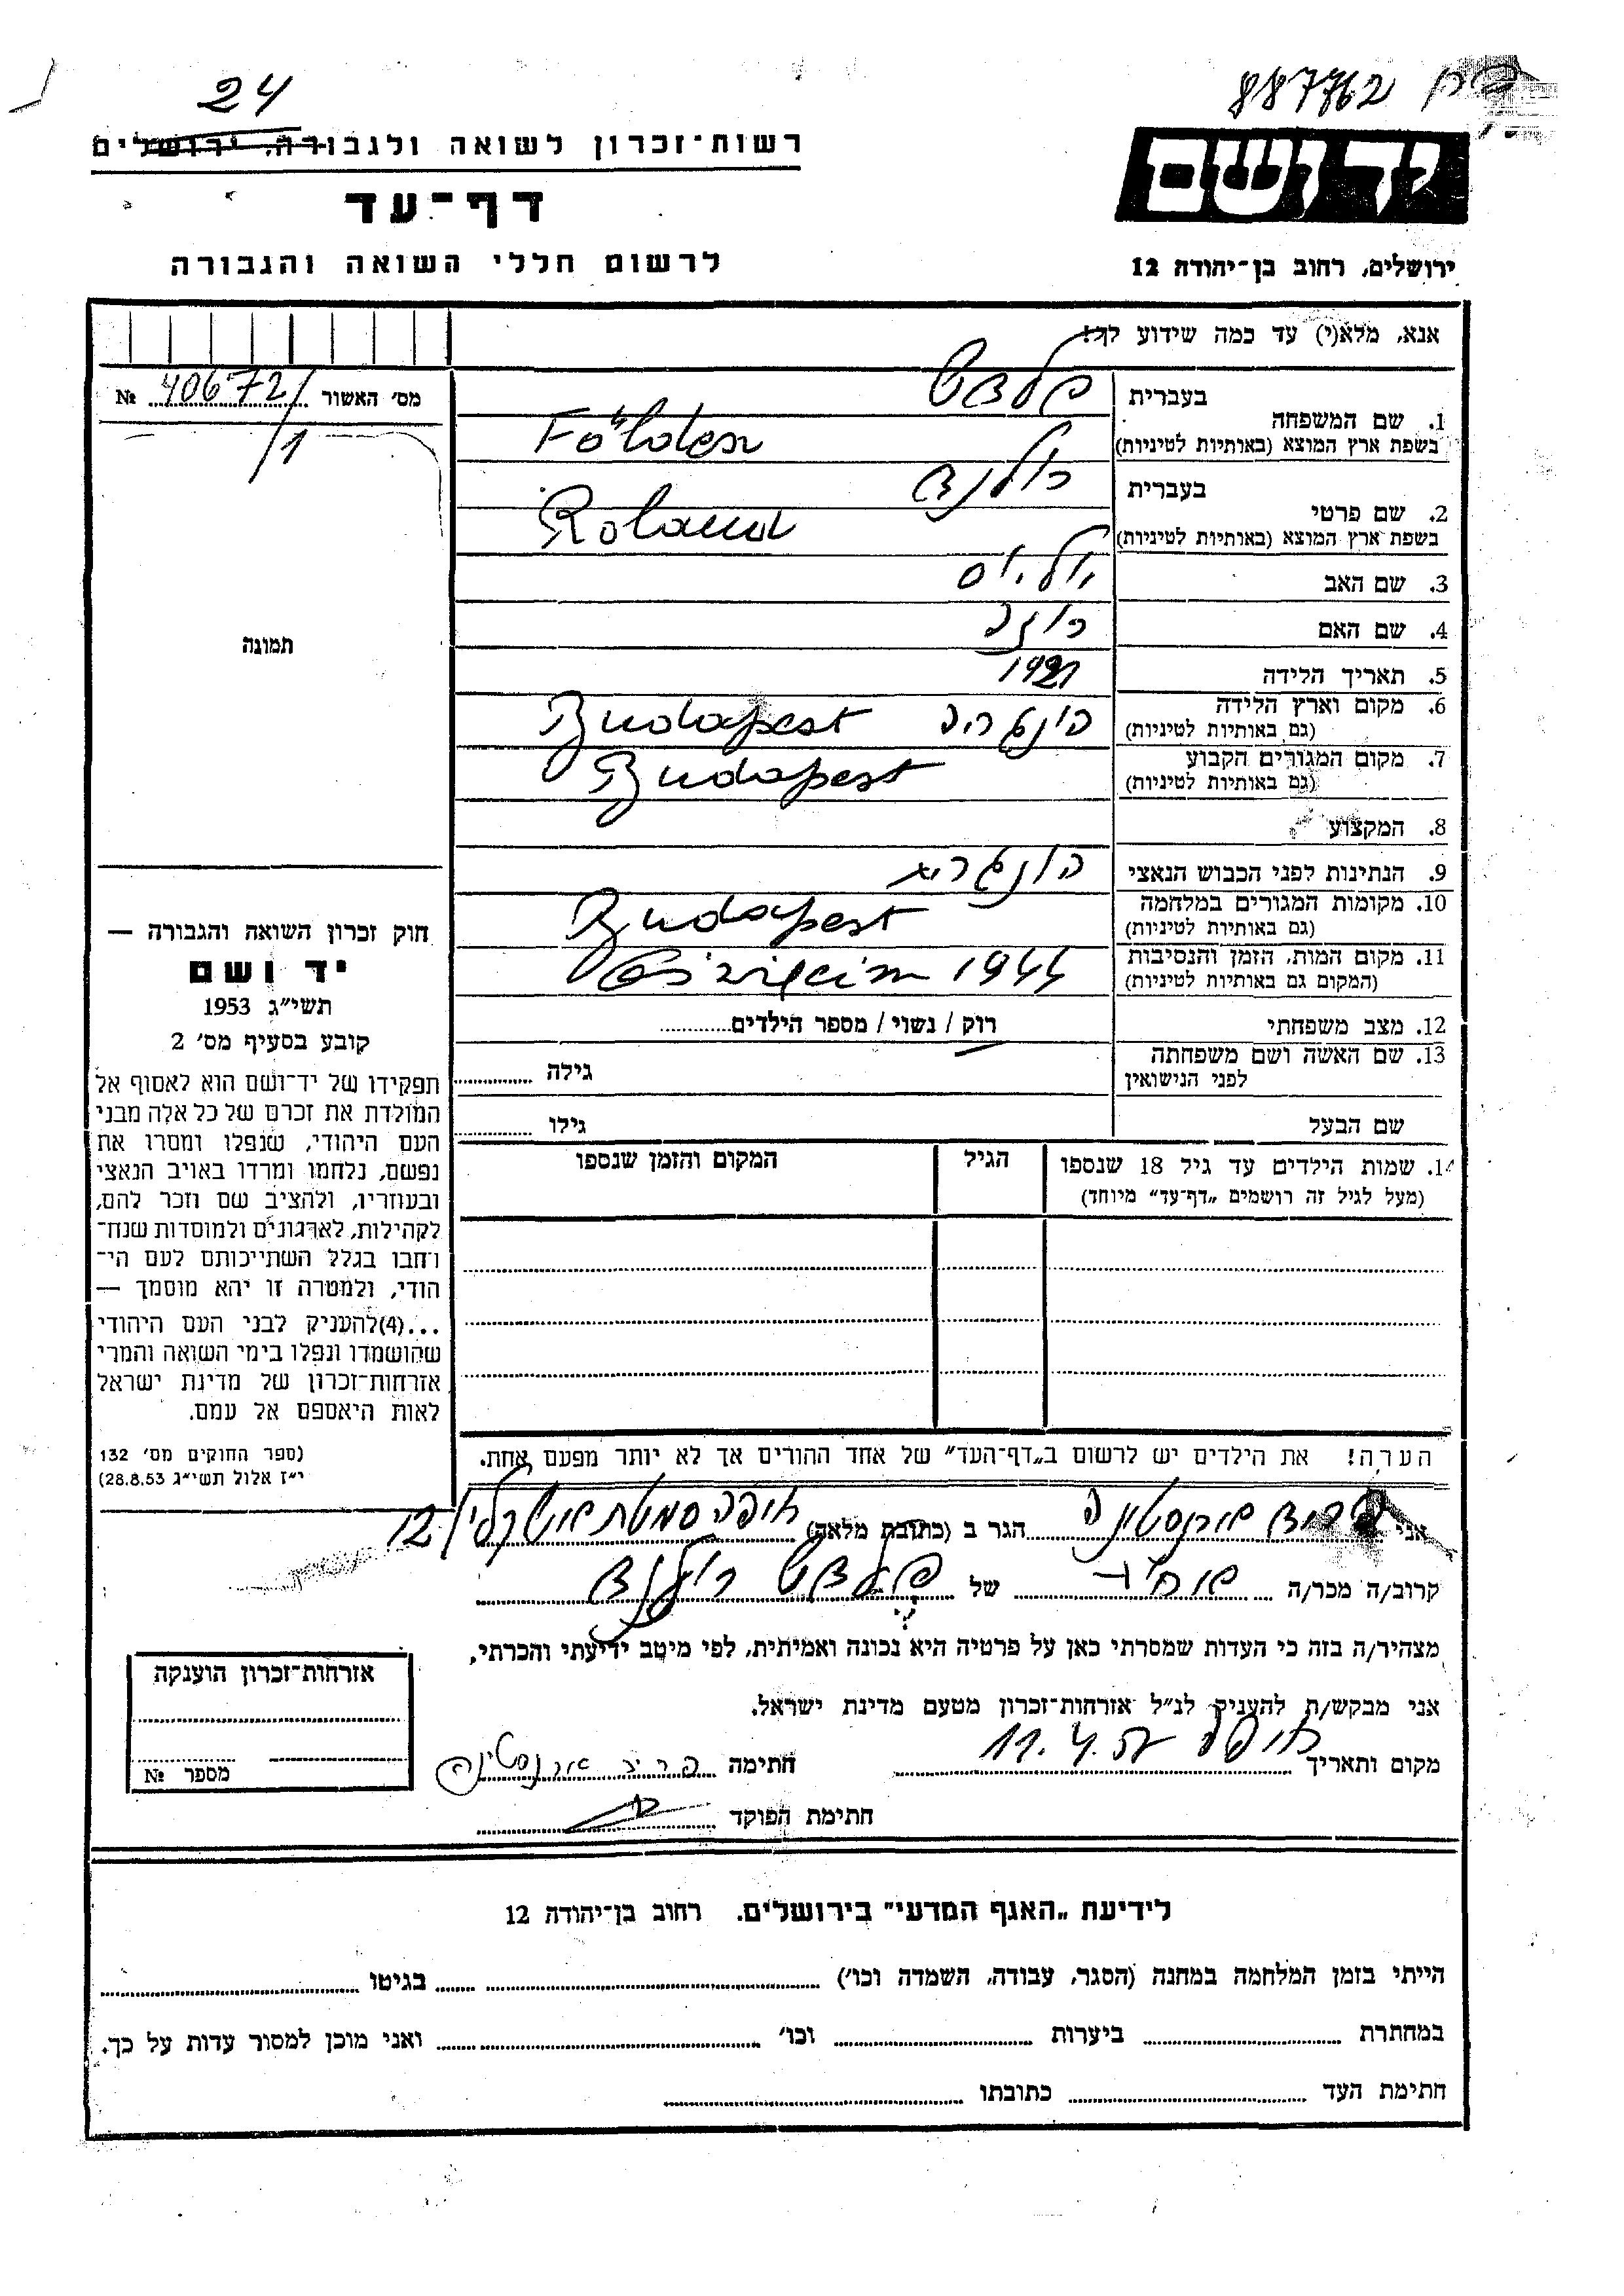 24
887762
רשות־זכרון לשואה ולגבורה, ירושלים
יד ושם
דף־עד
לרשום חללי השואה והגבורה
ירושלים, רחוב בן־יהודה 12
אנא, מלא(י) עד כמה שידוע לך!
מס׳ האשור № 40672/
/1
1. שם המשפחה
בעברית
בשפת ארץ המוצא (באותיות לטיניות)
2. שם פרטי
בעברית רולנד
בשפת ארץ המוצא (באותיות לטיניות) Roland
3. שם האב
4. שם האם רוזה
5. תאריך הלידה 1921
6. מקום וארץ הלידה
(גם באותיות לטיניות) הונגריה Budapest
7. מקום המגורים הקבוע
(גם באותיות לטיניות) Budapest
8. המקצוע
9. הנתינות לפני הכבוש הנאצי הונגרית
10. מקומות המגורים במלחמה
(גם באותיות לטיניות) Budapest
11. מקום המות, הזמן והנסיבות
(המקום גם באותיות לטיניות) 1944
12. מצב משפחתי רוק / נשוי / מספר הילדים
13. שם האשה ושם משפחתה
לפני הנישואין
גילה
שם הבעל גילו
14. שמות הילדים עד גיל 18 שנספו
(מעל לגיל זה רושמים „דף־עד״ מיוחד)
הגיל
המקום והזמן שנספו
תמונה
חוק זכרון השואה והגבורה —
יד ושם
תשי״ג 1953
קובע בסעיף מס׳ 2
תפקידו של יד־ושם הוא לאסוף אל
המולדת את זכרם של כל אלה מבני
העם היהודי, שנפלו ומסרו את
נפשם, נלחמו ומרדו באויב הנאצי
ובעוזריו, ולהציב שם וזכר להם,
לקהילות, לארגונים ולמוסדות שנח־
רחבו בגלל השתייכותם לעם הי־
הודי, ולמטרה זו יהא מוסמך —
...(4)להעניק לבני העם היהודי
שהושמדו ונפלו בימי השואה והמרי
אזרחות־זכרון של מדינת ישראל
לאות היאספם אל עמם.
(ספר החוקים מס׳ 132
י״ז אלול תשי״ג 28.8.53)
הערה! את הילדים יש לרשום ב„דף־העד״ של אחד ההורים אך לא יותר מפעם אחת.
אני הגר ב (כתובת מלאה) חיפה 12
קרוב/ה מכר/ה של רולנד
מצהיר/ה בזה כי העדות שמסרתי כאן על פרטיה היא נכונה ואמיתית, לפי מיטב ידיעתי והכרתי,
אני מבקש/ת להעניק לנ״ל אזרחות־זכרון מטעם מדינת ישראל.
מקום ותאריך חיפה 11.4. חתימה
חתימת הפוקד
אזרחות־זכרון הוענקה
מספר №
לידיעת „האגף המדעי״ בירושלים. רחוב בן־יהודה 12
הייתי בזמן המלחמה במחנה (הסגר, עבודה, השמדה וכו׳) בגיטו
במחתרת ביערות וכו׳ ואני מוכן למסור עדות על כך.
חתימת העד כתובתו